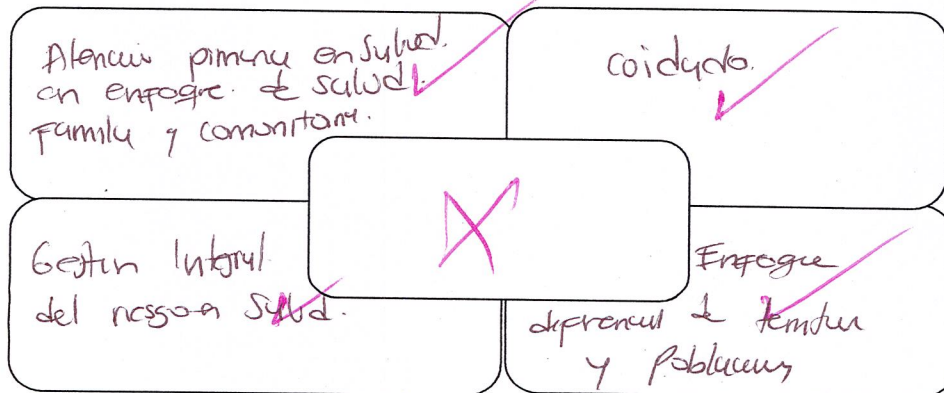 Atención primaria en salud.
en enfoque de salud.
Familia y comunitaria.
coidado.
Gestión Integral
del riesgo en Salud.
Enfoque
diferencial de territorio
y Poblaciones